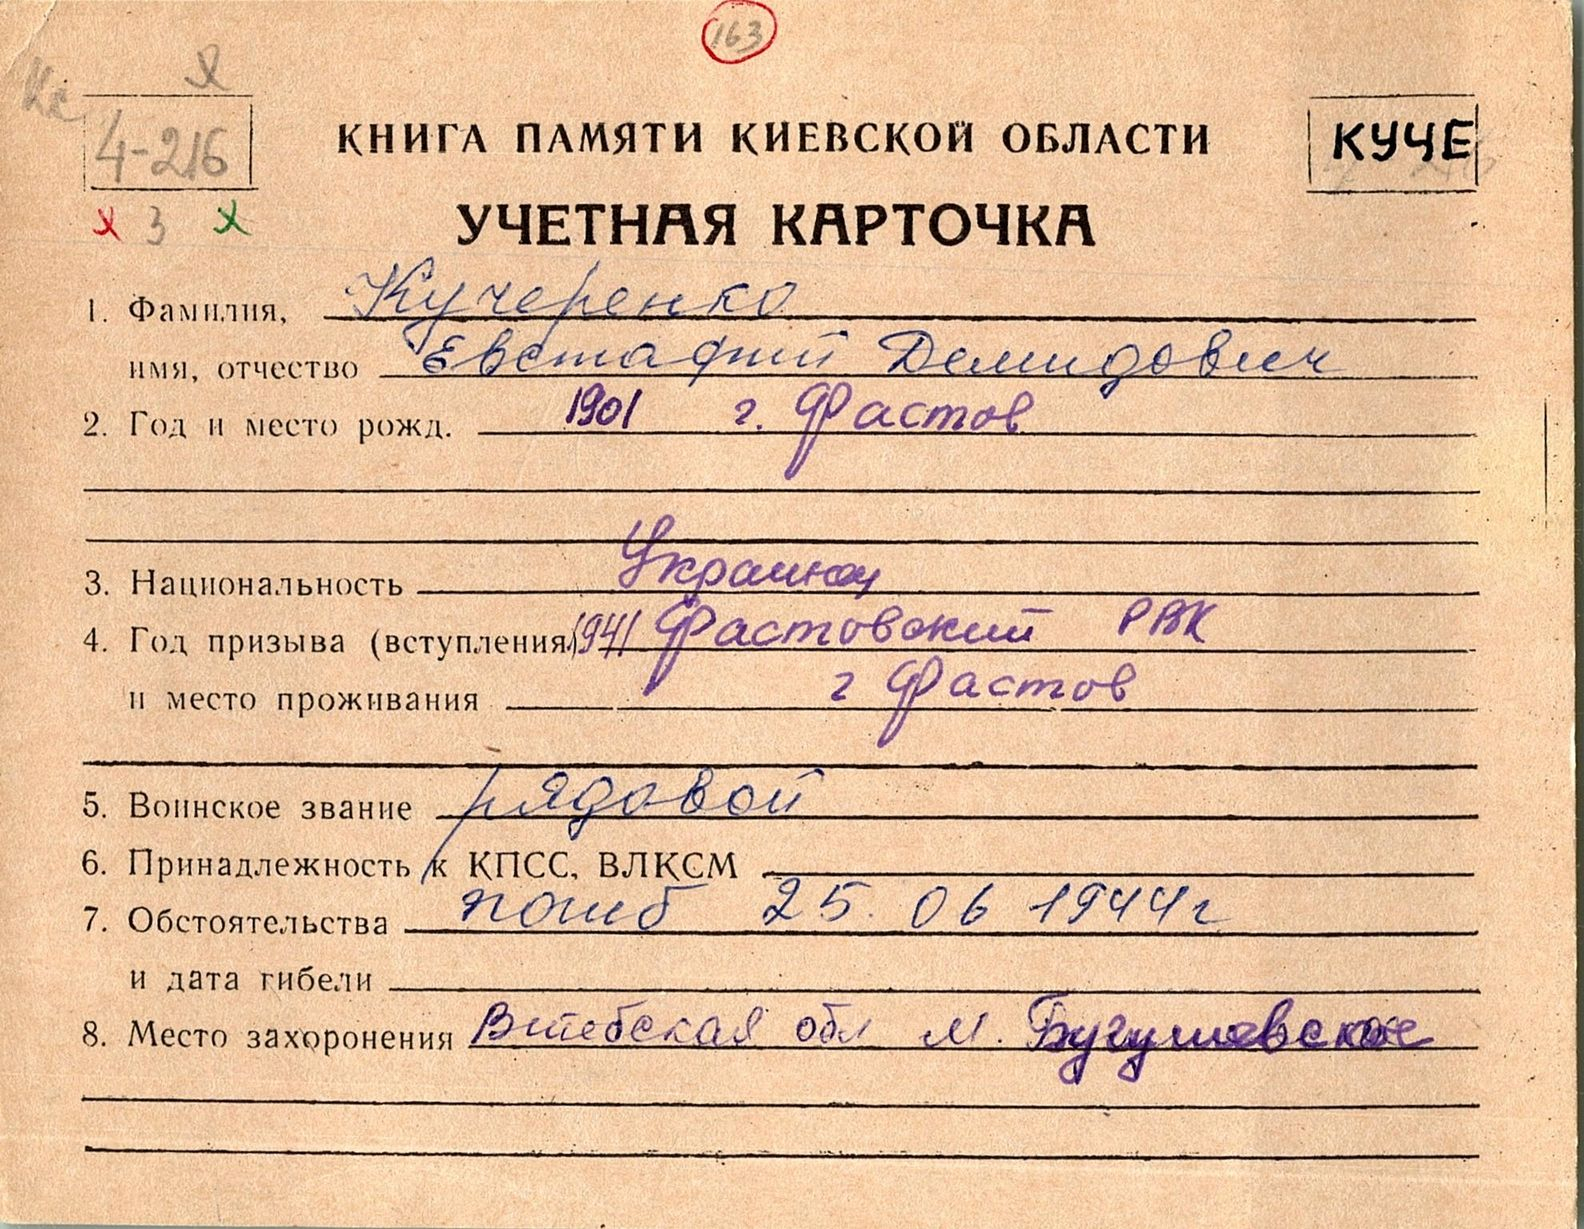 163
4-216
КНИГА ПАМЯТИ КИЕВСКОЙ ОБЛАСТИ
КУЧЕ
3
УЧЕТНАЯ КАРТОЧКА
1. Фамилия, Кучеренко
имя, отчество Евстафий Демидович
2. Год и место рожд. 1901 г. Фастов
3. Национальность Украинец
4. Год призыва (вступления) 1941 Фастовский РВК
и место проживания г Фастов
5. Воинское звание рядовой
6. Принадлежность к КПСС, ВЛКСМ
7. Обстоятельства погиб 25.06 1944г
и дата гибели
8. Место захоронения Витебская обл м. Бугушевское